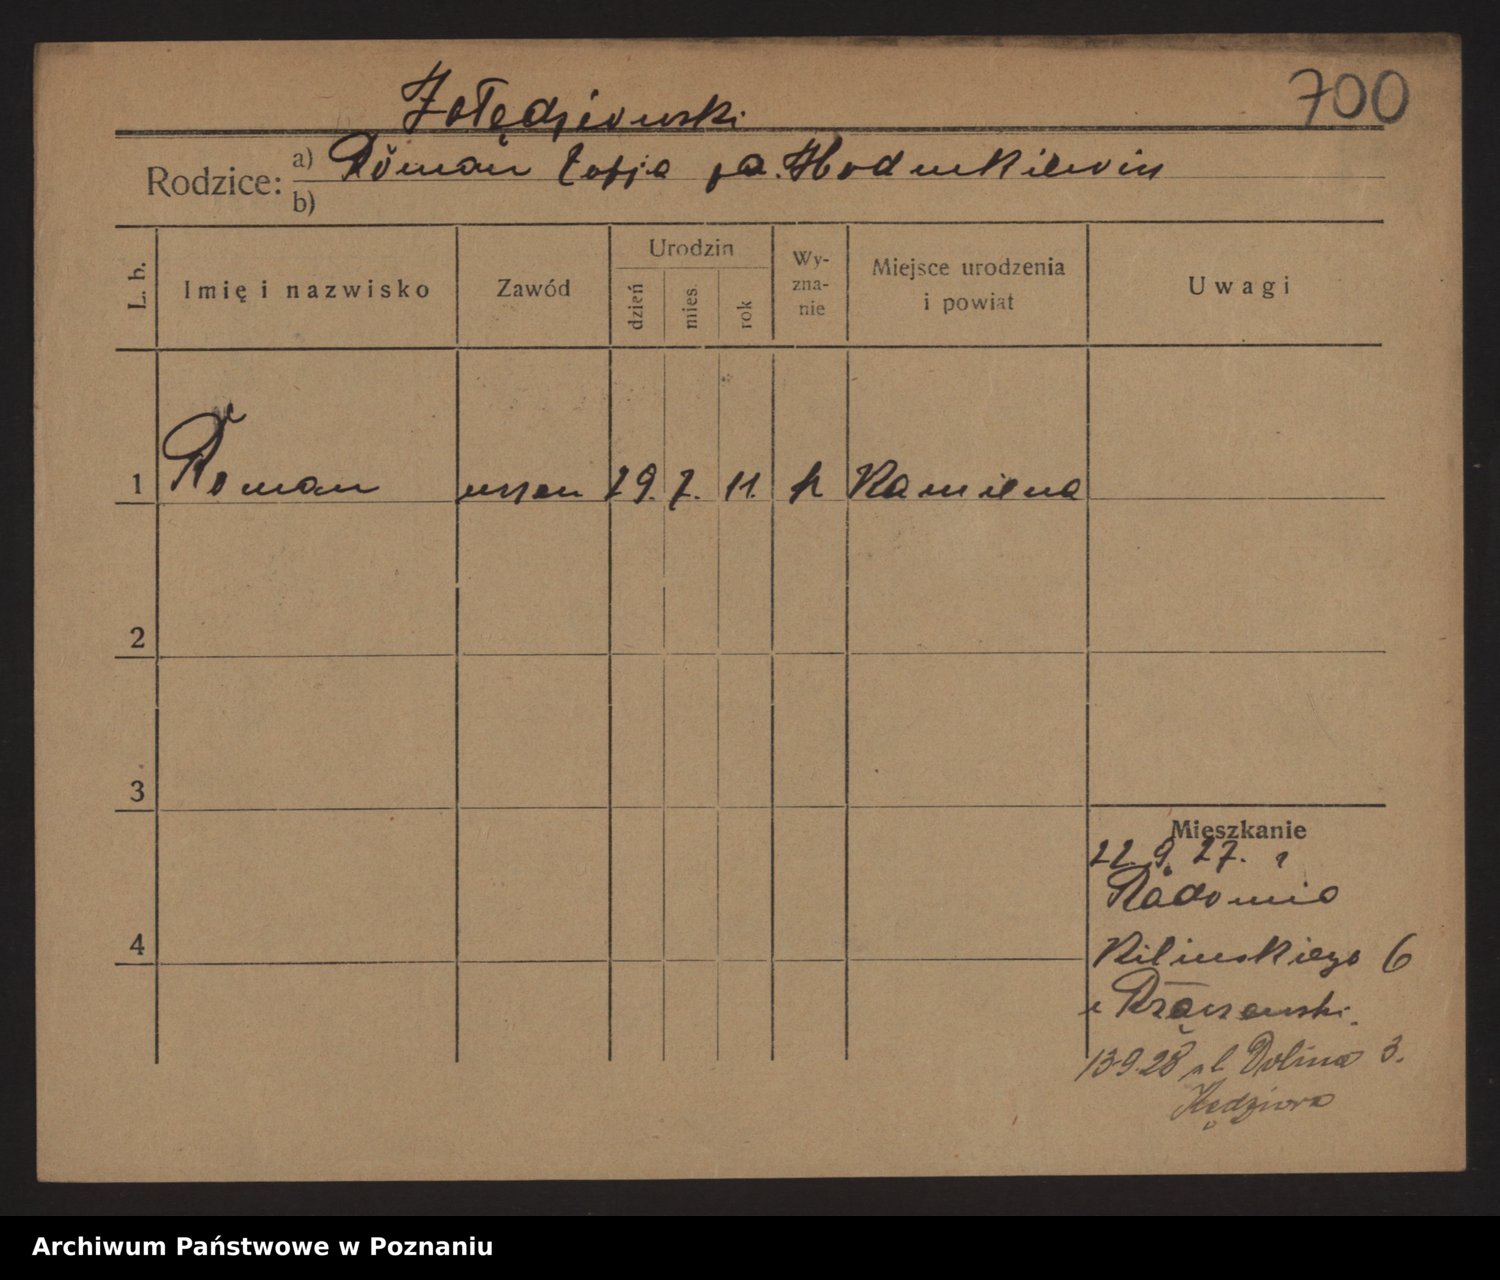 Żołędziowski
700
Rodzice: a) Roman Zofja
b)
L. b.
Imię i nazwisko
Zawód
Urodzin
dzień
mies.
rok
Wy-
zna-
nie
Miejsce urodzenia
i powiat
Uwagi
1 Roman uczen 29. 7. 11. k Kamiena
2
3
4
Mieszkanie
22. 9. 27. z
Radomia
Kilinskiego 6
13.9.28 ul Dolina 3.
Kędziora
Archiwum Państwowe w Poznaniu